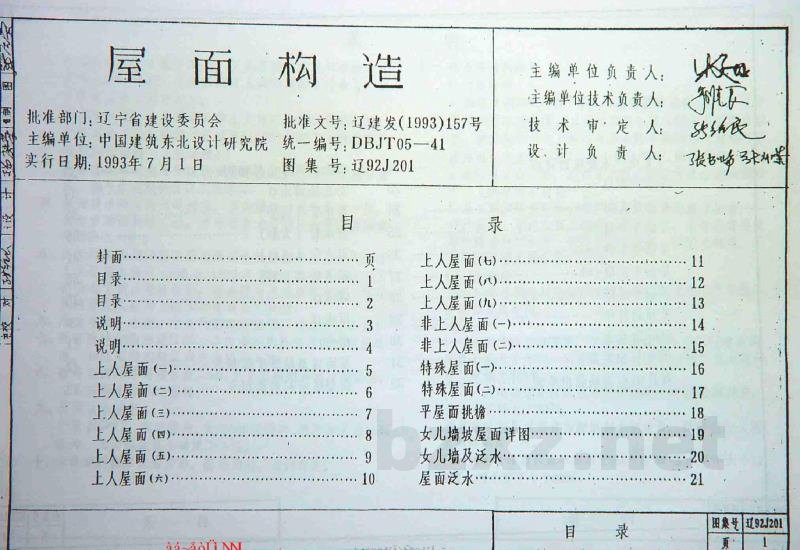 屋面构造
批准部门:辽宁省建设委员会 批准文号:辽建发(1993)157号
主编单位:中国建筑东北设计研究院 统一编号:DBJT05—41
实行日期:1993年7月1日 图集号:辽92J201
主编单位负责人:
主编单位技术负责人:
技术审定人:
设计负责人:
目录
封面 页
目录 1
目录 2
说明 3
说明 4
上人屋面(一) 5
上人屋面(二) 6
上人屋面(三) 7
上人屋面(四) 8
上人屋面(五) 9
上人屋面(六) 10
上人屋面(七) 11
上人屋面(八) 12
上人屋面(九) 13
非上人屋面(一) 14
非上人屋面(二) 15
特殊屋面(一) 16
特殊屋面(二) 17
平屋面挑檐 18
女儿墙坡屋面详图 19
女儿墙及泛水 20
屋面泛水 21
目录
图集号 辽92J201
页 1